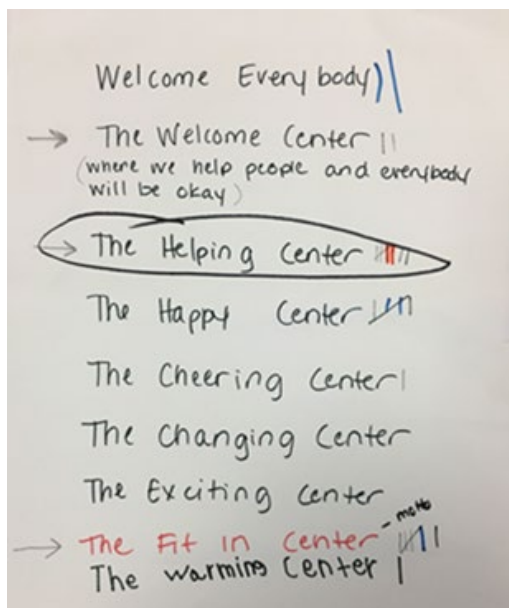 Welcome Everybody
The Welcome Center
(where we help people and everybody
will be okay)
The Helping Center
The Happy Center
The Cheering Center
The Changing Center
The Exciting Center
The Fit In Center - motto
The Warming Center